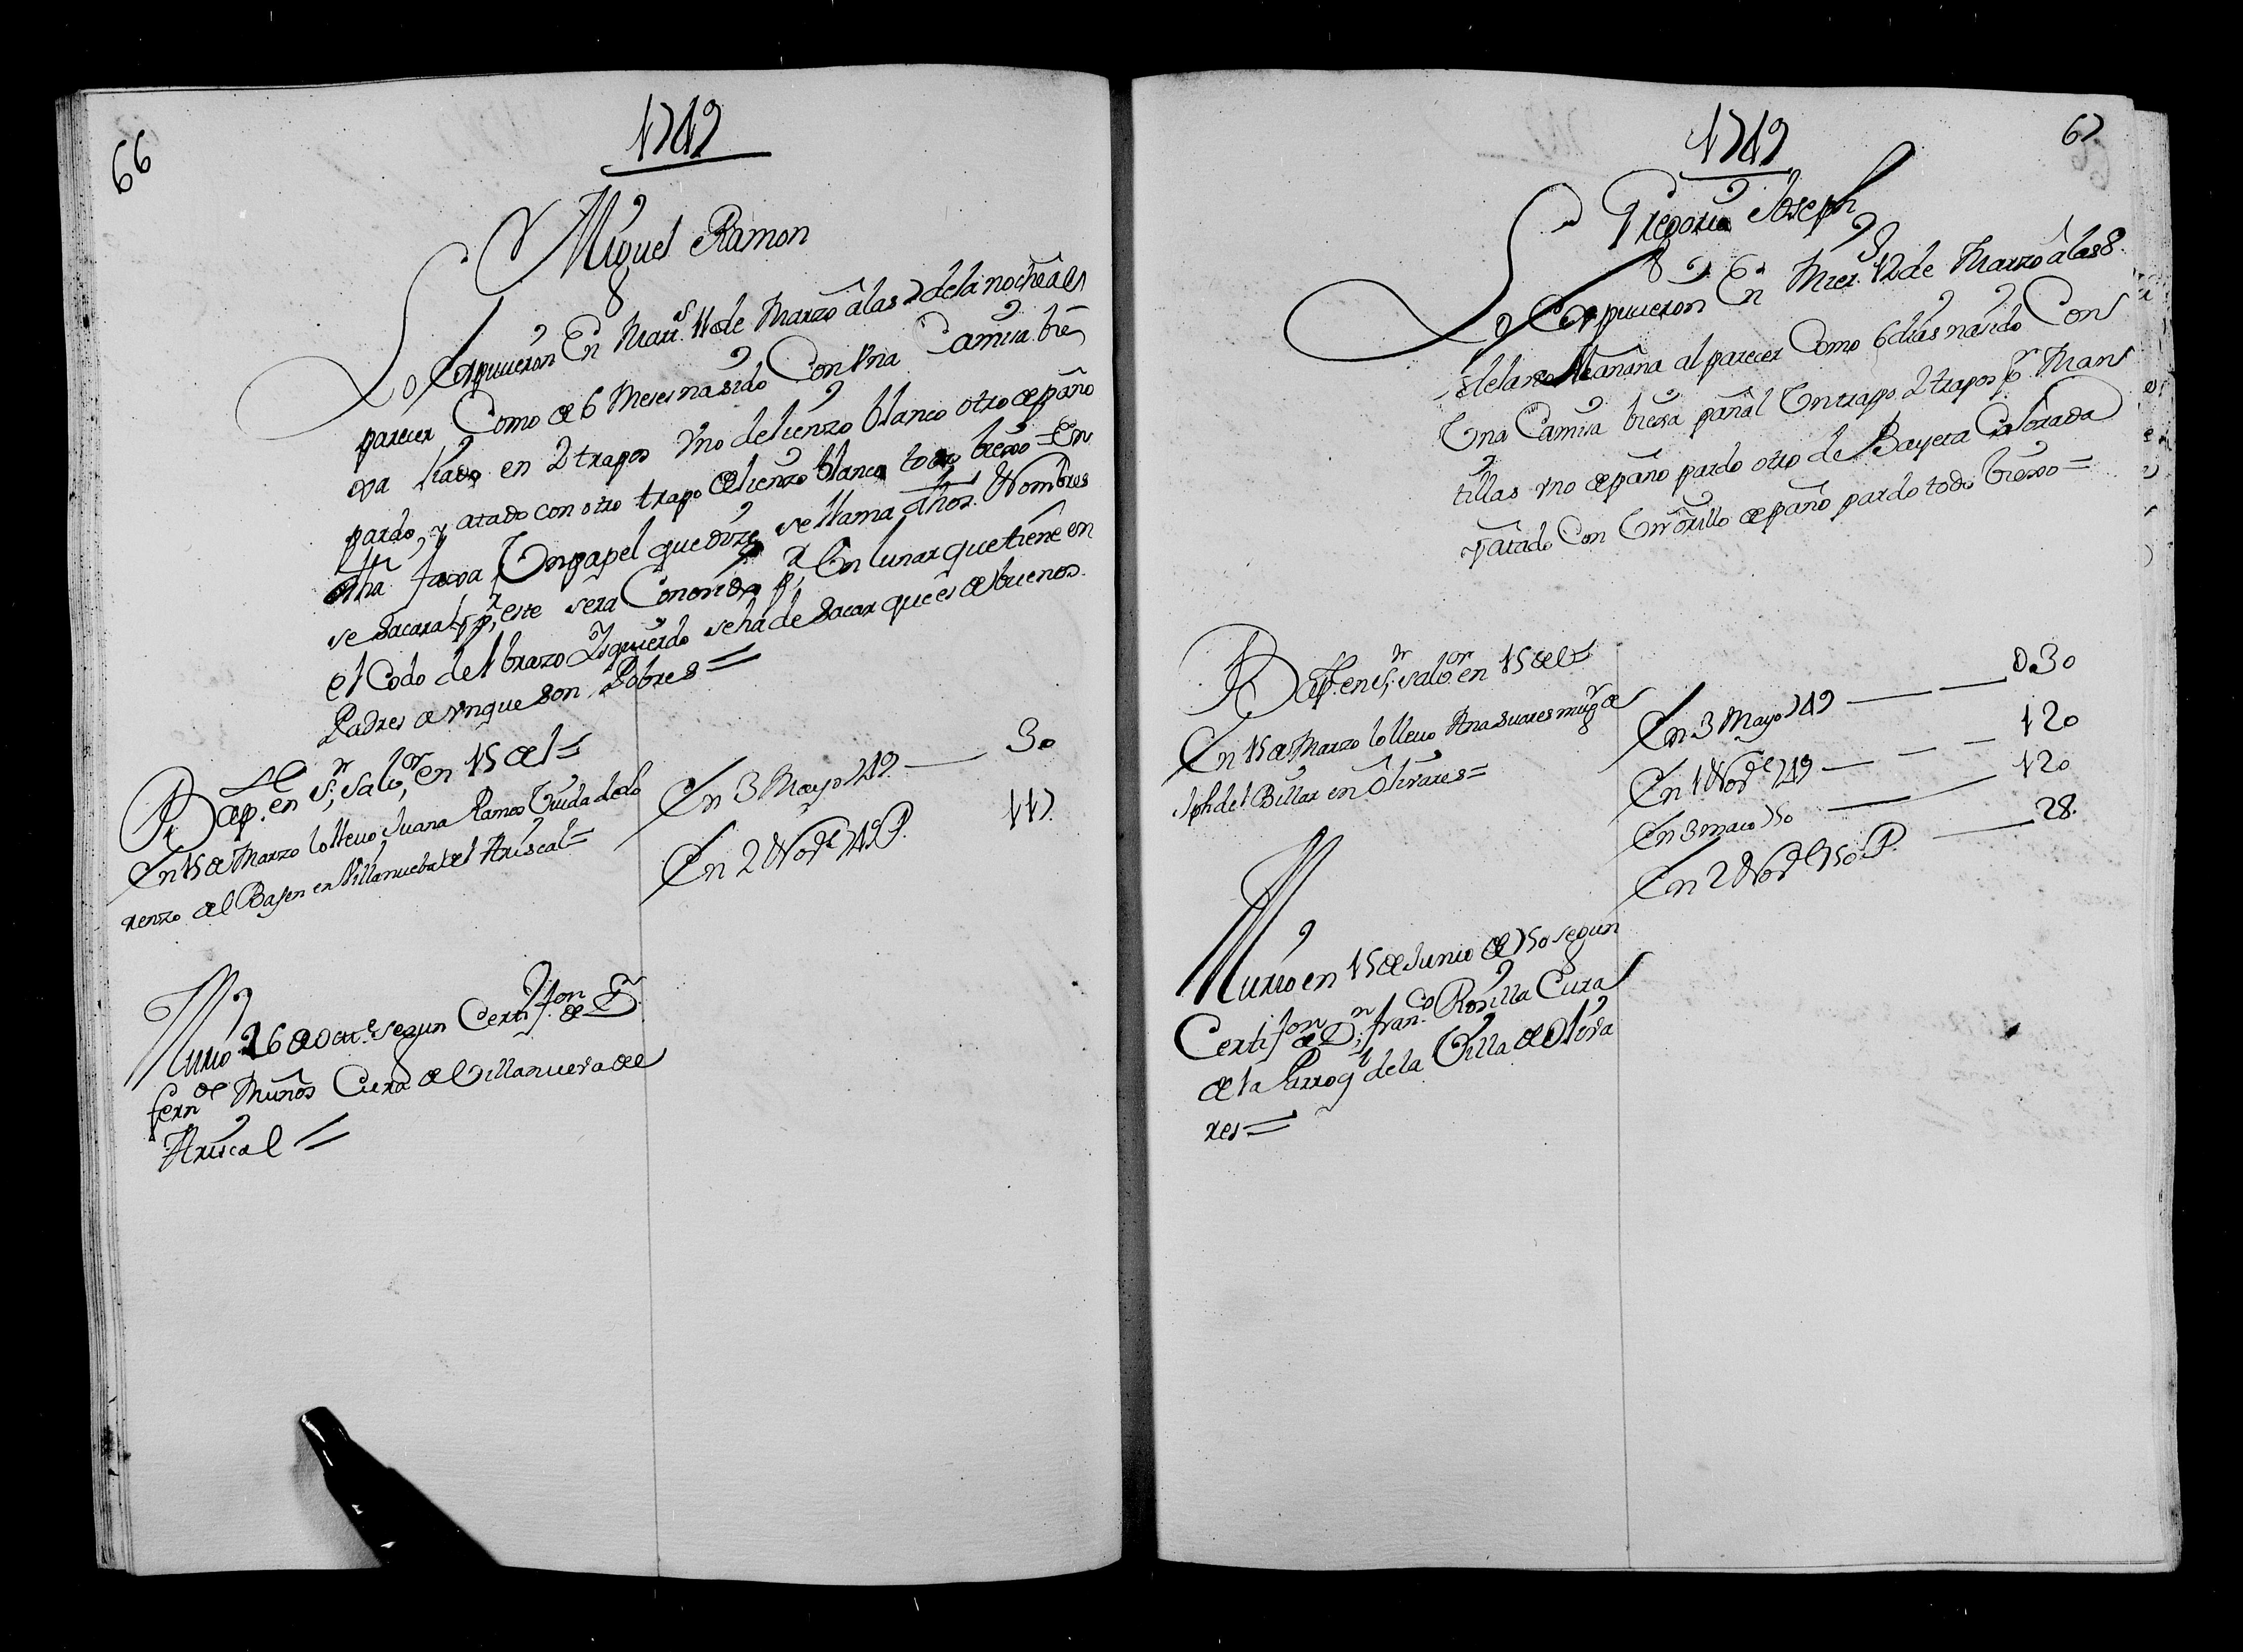 66
1749
Miguel Ramon
Lo Expucieron En Mart.s 11 de Marzo â las 7 de la noche âl
parecer Como de 6 Meses nasido Con Vna Camisa bie
xa liado en 2 trapos Vno de lienzo blanco otro de paño
pardo, y atado con otro trapo de lienzo blanco todo biexo = En
dha faxa Vn papel que dize se llama dhos. Nombres
se sacara, y p.r este sera Conosido p.r Vn lunar que tiene en
el Codo del brazo Izquierdo se hà de Sacar que es de buenos
Padres aunque son Pobres =
Bap. en S.r Salb.or en 15 del =
En 15 de Marzo lo lleuo Juana Ramos Viuda de Lo
renzo del Basen en Villanueba del Ariscal =
En 3 Mayo 749. — 30
En 2 Nov.e 749 P. 117.
Murio 26 de Oct.e segun Certif.on de D.n
Fern.do Muños Cura de Villanueva del
Ariscal =
67
1749
Gregorio Joseph
Lo Expucieron En Mier.s 12 de Marzo â las 8
de la Mañana al parecer Como 6 dias nasido Con
Vna Camisa biexa pañal Vn trapo 2 trapos p.r Man
tillas vno de paño pardo otro de Bayeta Colorada
y atado Con Vn orillo de paño pardo todo biexo =
Bap. en S.r Salb.or en 15 del =
En 15 de Marzo lo lleuo Ana Suares mug.r de
Jph del Billar en Olivares =
En 3 Mayo 749 — — 030
En 1 Nov.e 749 — — — 120
En 3 maio 750 — — 120
En 2 Nov.e 750 P. — 28.
Murio en 15 de Junio de 750 segun
Certif.on de D.n Fran.co Rosilla Cura
de la Parroq.l de la Villa de Oliva
res =